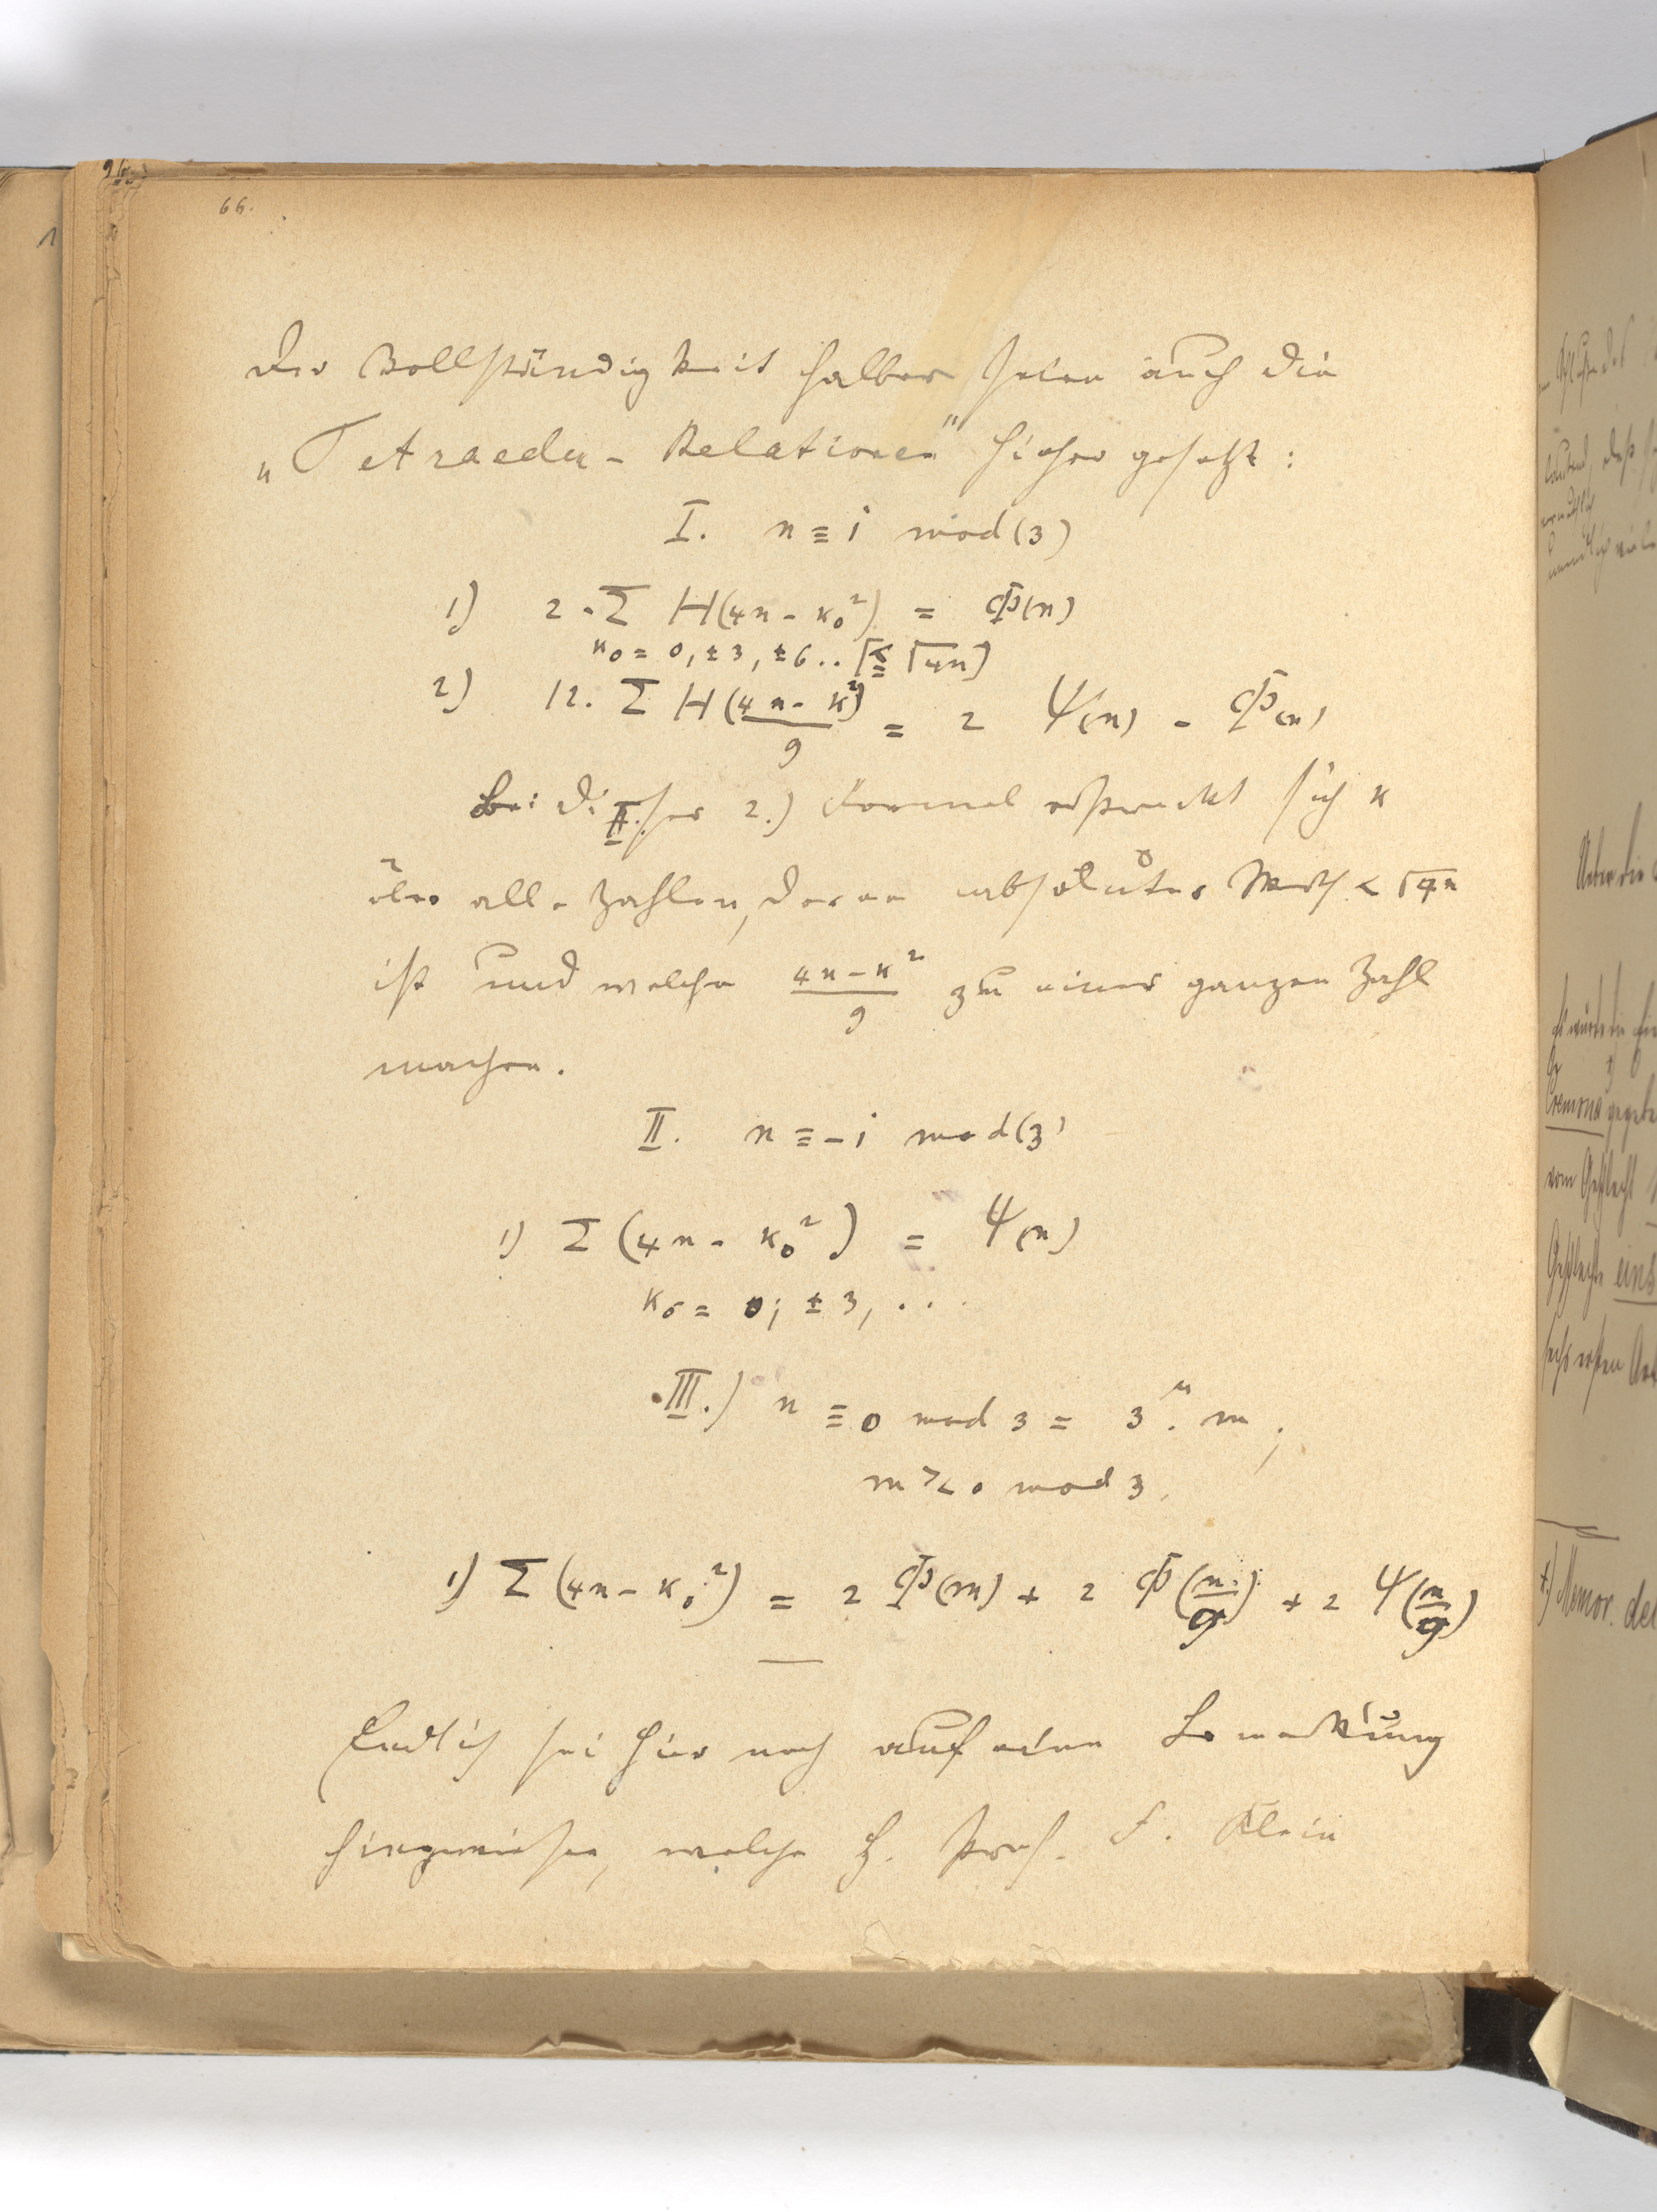 66.
Der Vollständigkeit halber seien auch die
„Tetraeder-Relationen" hieher gesetzt:
I. n ≡ 1 mod (3)
1) 2·Σ H(4n - κ₀²) = Φ(n)
κ₀ = 0, ±3, ±6.. [≦ √4n]
2) 12. Σ H((4n - κ²)/9) = 2 Ψ(n) - Φ(n)
Bei dieser 2.) Formel erstreckt sich κ
über alle Zahlen, deren absoluter Werth < √4n
ist und welche (4n-κ²)/9 zu einer ganzen Zahl
machen.
II. n ≡ -1 mod (3)
1) Σ (4n - κ₀²) = Ψ(n)
κ₀ = 0; ±3, ...
III.) n ≡ 0 mod 3 = 3^μ. m;
m >< 0 mod 3.
1) Σ (4n - κ₀²) = 2 Φ(m) + 2 Φ(n/9) + 2 Ψ(n/9)
Endlich sei hier noch auf eine Bemerkung
hingewiesen, welche H. Prof. F. Klein